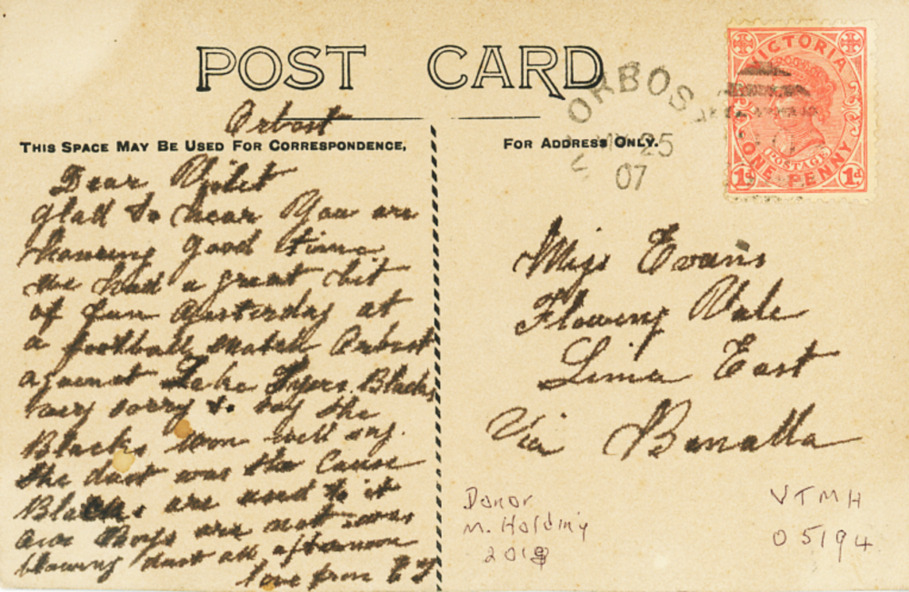 POST CARD
Orbost
THIS SPACE MAY BE USED FOR CORRESPONDENCE,
Dear Violet
glad to hear You are
having good time
we had a great bit
of fun yesterday at
a football match Orbost
against Lake Tyers Blacks
very sorry to say the
Blacks won well
the dust was the Cause
Blacks are used to it
our Boys are not
blowing dust all afternoon
love from
FOR ADDRESS ONLY.
ORBOS
25
07
VICTORIA
POSTAGE
ONE PENNY
1d 1d
Miss Evans
Flowing Vale
Lima East
Via Benalla
Donor
M. Holding
2018
VTMH
05194